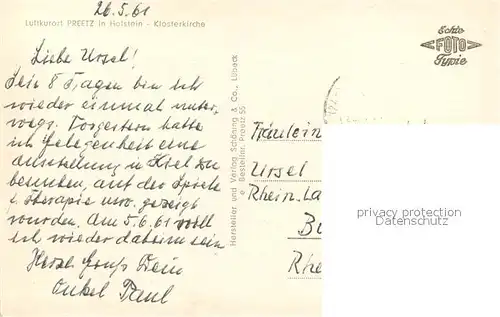 26.5.61
Luftkurort PREETZ in Holstein - Klosterkirche
Liebe Ursel!
Seit 8 Tagen bin ich
wieder einmal unter-
wegs. Vorgestern hatte
ich Gelegenheit eine
Ausstellung in Kiel zu
besuchen, auf der Spiele
f. Therapie usw. gezeigt
wurden. Am 5.6.61 will
ich wieder daheim sein
Herzl. Gruß Dein
Onkel Paul
Hersteller und Verlag Schöning & Co., Lübeck
Bestellnr. Preetz 55
Echte
FOTO
Typie
Fräulein
Ursel
Rhein-La
Rhe
privacy protection
Datenschutz